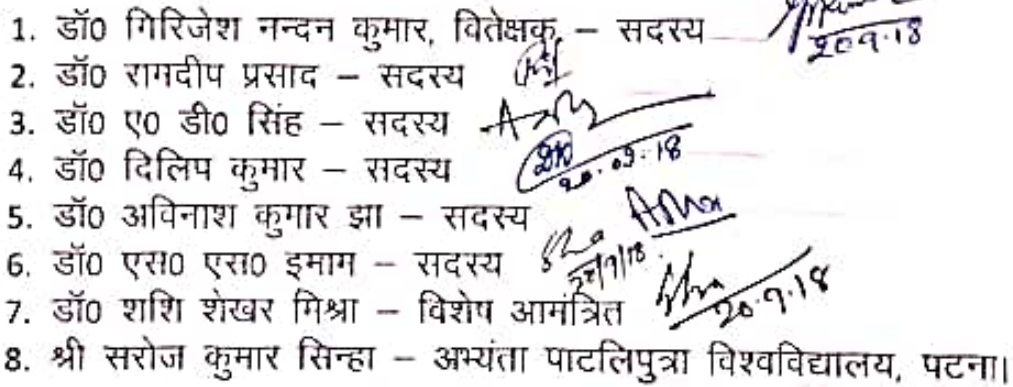 1. डॉ0 गिरिजेश नन्दन कुमार, वितेक्षक, – सदस्य
20.9.18
2. डॉ0 रामदीप प्रसाद – सदस्य
3. डॉ0 ए0 डी0 सिंह – सदस्य
4. डॉ0 दिलिप कुमार – सदस्य
20.09.18
5. डॉ0 अविनाश कुमार झा – सदस्य
6. डॉ0 एस0 एस0 इमाम – सदस्य
7. डॉ0 शशि शेखर मिश्रा – विशेष आमंत्रित
20.9.18
8. श्री सरोज कुमार सिन्हा – अभ्यंता पाटलिपुत्रा विश्वविद्यालय, पटना।